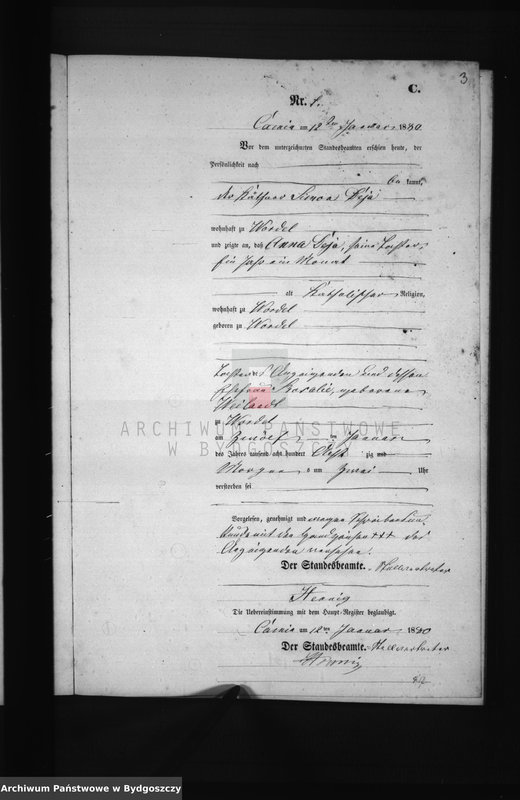 3
C.
Nr. 1.
am 12ten Januar 1880
Vor dem unterzeichneten Standesbeamten erschien heute, der
Persönlichkeit nach
be kannt,
der Käthner Simon Deja
wohnhaft zu Wordel
und zeigte an, daß Anna Deja, seine Tochter,
Ein Jahr ein Monat
alt Katholischer Religion,
wohnhaft zu Wordel
geboren zu Wordel
Tochter des Anzeigenden und dessen
Ehefrau Rosalie, geborene
zu Wordel
am Zwölf ten Januar
des Jahres tausend acht hundert Acht zig und
Morgens um Zwei Uhr
verstorben sei
Vorgelesen, genehmigt und wegen Schreibens
Unkunde mit den Handzeichen +++ des
Anzeigenden versehen.
Der Standesbeamte. Stellvertreter
Die Uebereinstimmung mit dem Haupt-Register beglaubigt.
am 12ten Januar 1880
Der Standesbeamte. Stellvertreter
ARCHIWUM PAŃSTWOWE
W BYDGOSZCZY
Archiwum Państwowe w Bydgoszczy